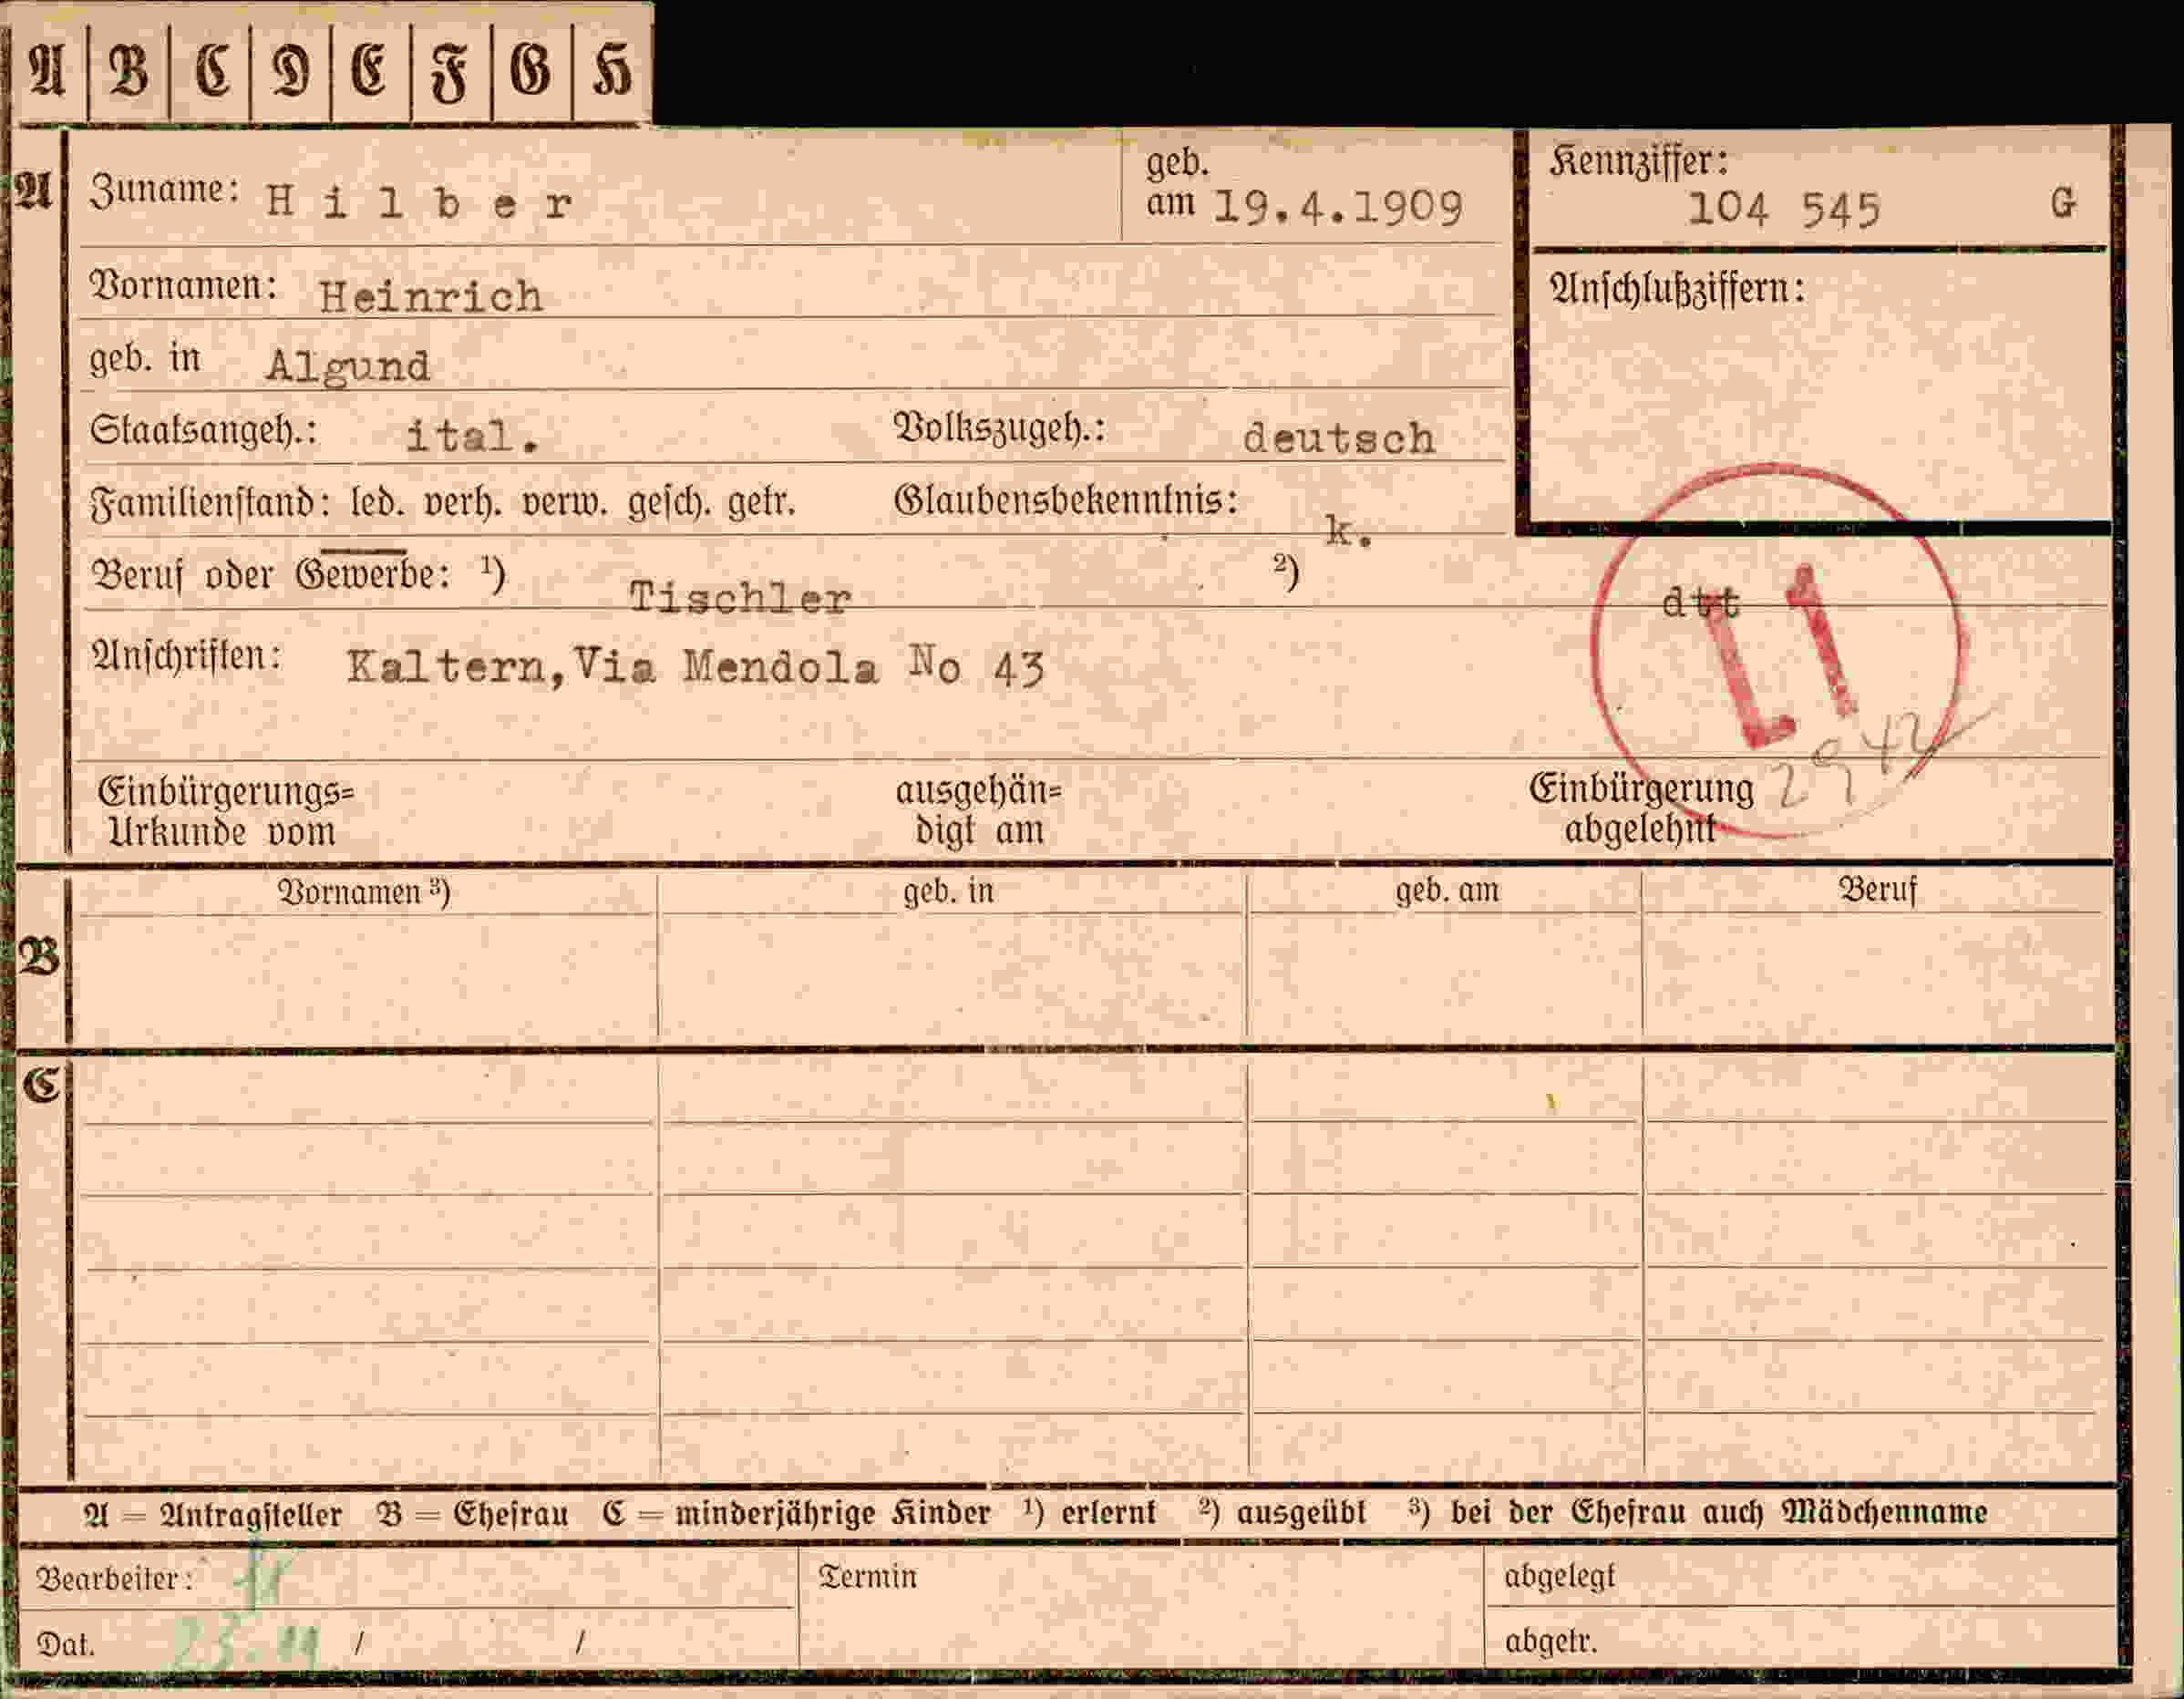 A B C D E F G H
A Zuname: Hilber geb. am 19.4.1909 Kennziffer: 104 545 G
Vornamen: Heinrich Anschlußziffern:
geb. in Algund
Staatsangeh.: ital. Volkszugeh.: deutsch
Familienstand: led. verh. verw. gesch. getr. Glaubensbekenntnis: k.
Beruf oder Gewerbe: ¹) Tischler ²) dtt
Anschriften: Kaltern, Via Mendola No 43
L1
2942
Einbürgerungs= ausgehän= Einbürgerung
Urkunde vom digt am abgelehnt
Vornamen ³) geb. in geb. am Beruf
B
C
A = Antragsteller B = Ehefrau C = minderjährige Kinder ¹) erlernt ²) ausgeübt ³) bei der Ehefrau auch Mädchenname
Bearbeiter: Termin abgelegt
Dat. / / abgetr.